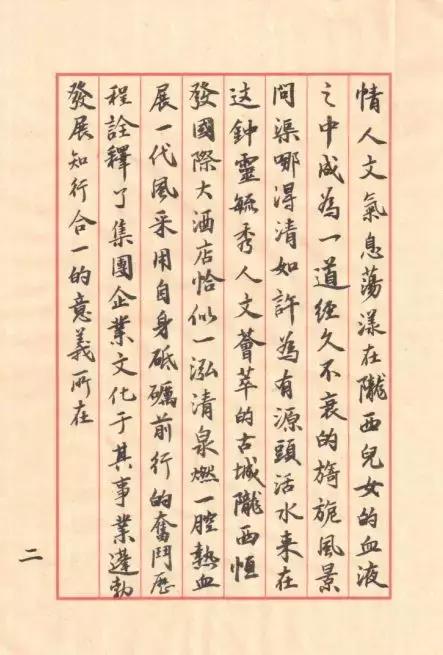 情人文氣息荡漾在隴西兒女的血液
之中成為一道經久不衰的旖旎風景
问渠哪得清如許為有源頭活水来在
这鈡靈毓秀人文薈萃的古城隴西恒
發國際大酒店恰似一泓清泉燃一腔熱血
展一代風采用自身砥礪前行的奮鬥歷
程詮釋了集團企業文化于其事業蓬勃
發展知行合一的意義所在
二